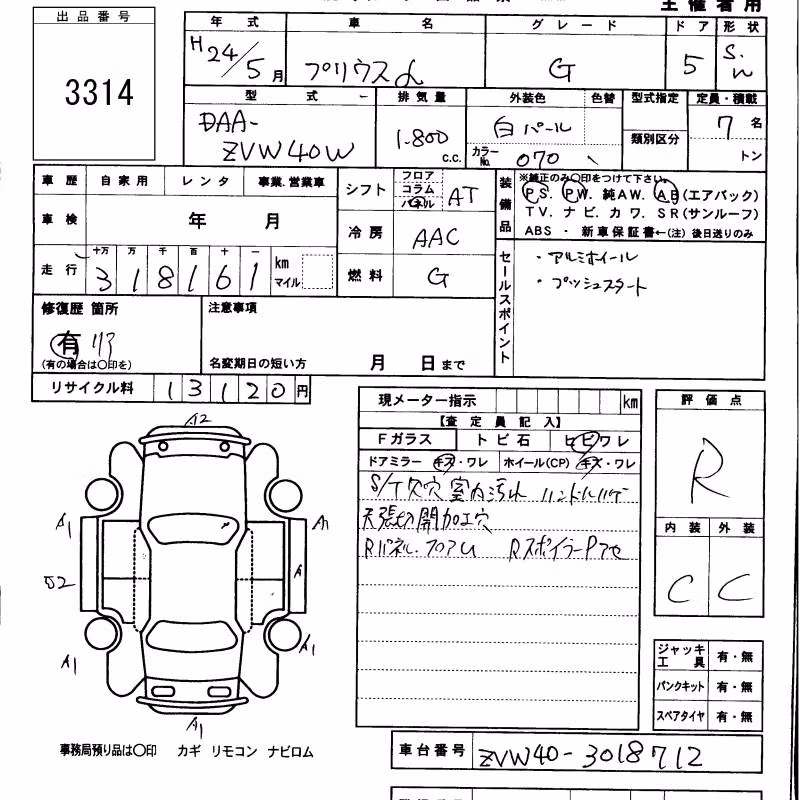 主催者用
出品番号
3314
年式 車名 グレード ドア 形状
H24/5月 プリウスα G 5 S.W
型式ー 排気量 外装色 色替 型式指定 定員・積載
DAA-
ZVW40W
1.800 c.c.
白パール
カラーNo. 070
類別区分
7名
トン
車歴 自家用 レンタ 事業.営業車
車検 年 月
走行 十万 万 千 百 十 一
318161 km マイル
シフト フロア コラム パネル AT
冷房 AAC
燃料 G
装備品
※純正のみ○印をつけて下さい。
PS. PW. 純AW. AB(エアバック)
TV. ナビ. カワ. SR(サンルーフ)
ABS ・ 新車保証書←(注) 後日送りのみ
セールスポイント
・アルミホイール
・プッシュスタート
修復歴 箇所
有 リア
(有の場合は○印を)
注意事項
名変期日の短い方 月 日まで
リサイクル料 13120円
現メーター指示 km
【査定員記入】
Fガラス トビ石 ヒビワレ
ドアミラー キズ・ワレ ホイール(CP) キズ・ワレ
S/T欠穴 室内汚れ ハンドルハゲ
天張切開加工穴
Rパネル.フロアU RスポイラーPアセ
評価点
R
内装 外装
C C
A2
A1
A1
U2
A
A1
A1
A1
ジャッキ工具 有・無
パンクキット 有・無
スペアタイヤ 有・無
事務局預り品は○印 カギ リモコン ナビロム
車台番号 ZVW40-3018712